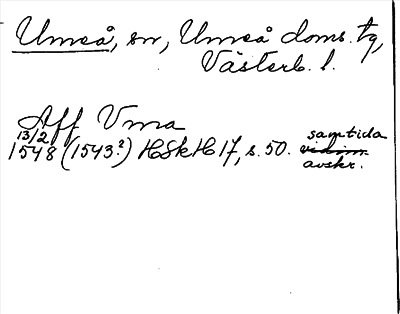 Umeå, sn, Umeå doms. tg,
Västerb. l.
Aff Vma
13/2 1548 (1543?) HSkH 17, s. 50. samtida
avskr.